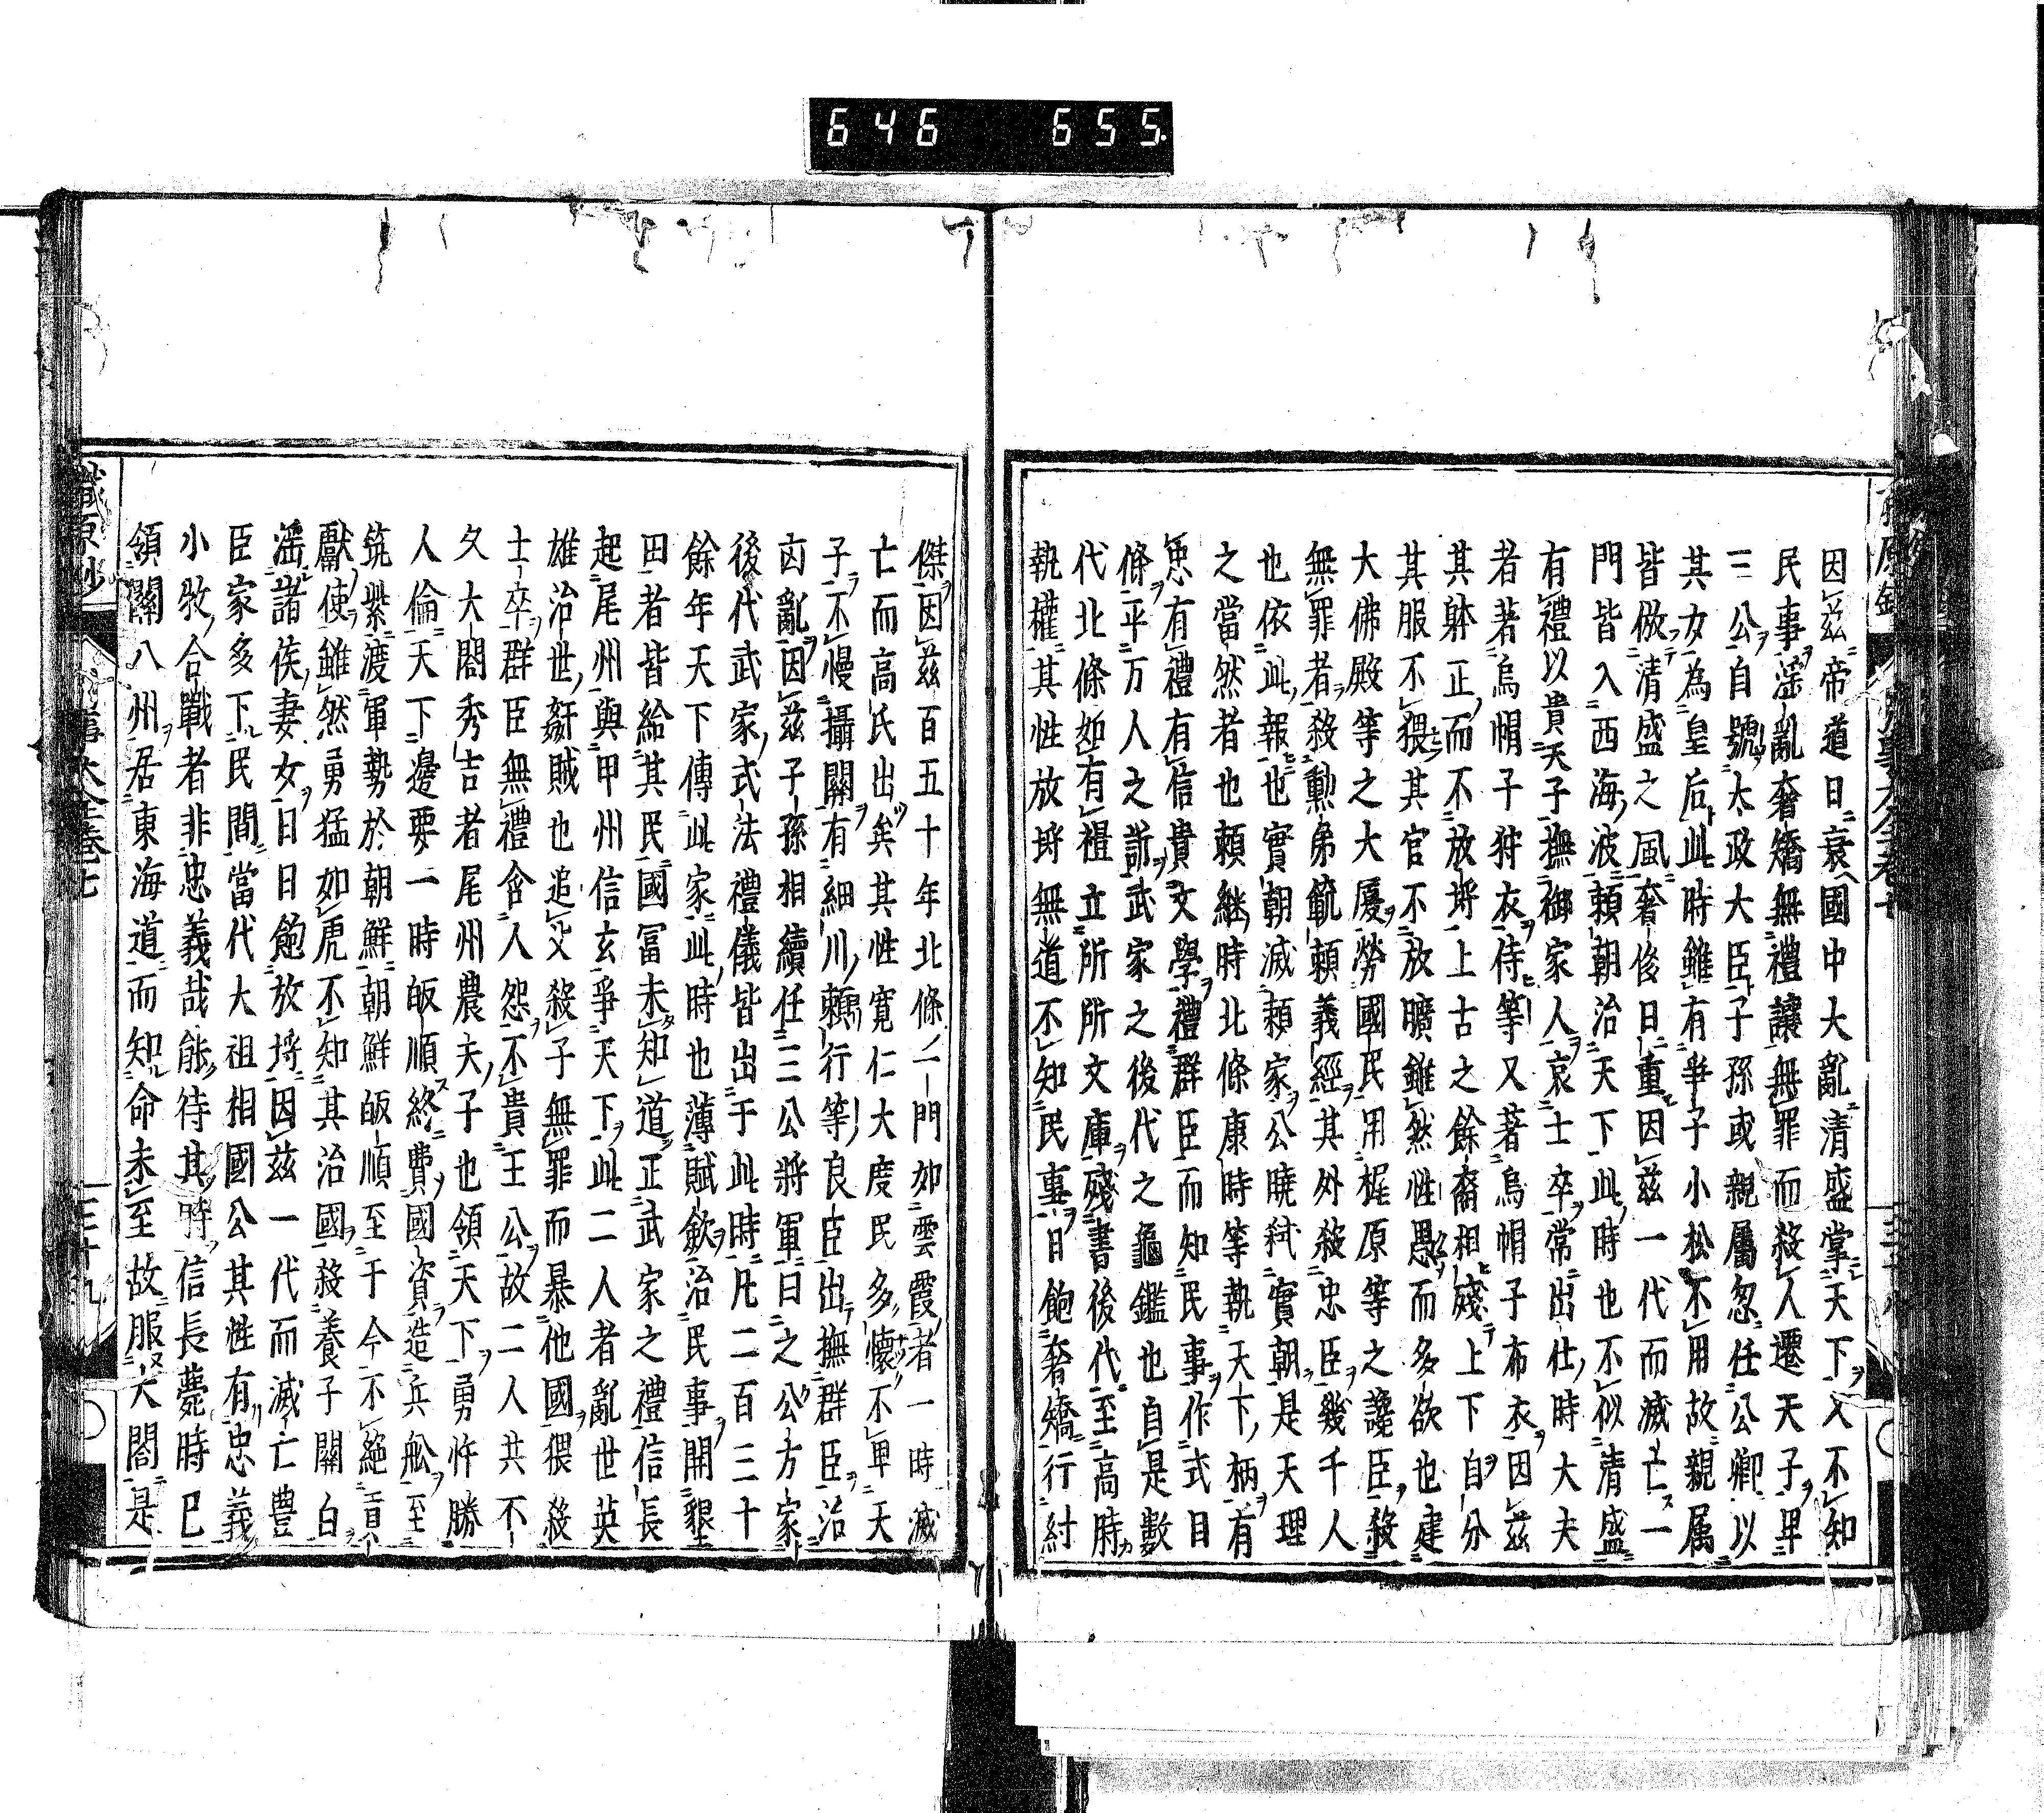 646 655
因茲帝道日衰國中大亂清盛掌天下又不知
民事滛亂奢矯無禮讓無罪而殺人遷天子卑
三公自號太政大臣子孫或親屬忽任公卿以
其女為皇后此時雖有爭子小松不用故親属
皆倣清盛之風奢侈日重因茲一代而滅亡一
門皆入西海波頼朝治天下此時也不似清盛
有禮以貴天子撫御家人哀士卒常出仕時大夫
者著烏帽子狩衣侍等又著烏帽子布衣因茲
其躰正而不放埒上古之餘裔相殘上下自分
其服不猥其官不放曠雖然性愚而多欲也建
大佛殿等之大厦勞國民用梶原等之讒臣殺
無罪者殺勲弟範頼義經其外殺忠臣幾千人
也依此報也實朝滅頼家公曉弑實朝是天理
之當然者也頼継時北條康時等執天下柄有
恵有禮有信貴文學禮群臣而知民事作式目
條平万人之訴武家之後代之龜鑑也自是數
代北條如有禮立所所文庫殘書後代至高時
執權其性放埒無道不知民事日飽奢矯行紂
傑因茲百五十年北條一門如雲霞者一時滅
亡而高氏出矣其性寛仁大度民多懷不卑天
子不慢攝關有細川頼行等良臣出撫群臣治
囟亂因茲子孫相續任三公將軍曰之公方家
後代武家式法禮儀皆出于此時凡二百三十
餘年天下傳此家此時也薄賦歛治民事開墾
田者皆給其民國冨未知道正武家之禮信長
起尾州與甲州信玄爭天下此二人者亂世英
雄治世姧賊也追父殺子無罪而暴他國猥殺
士卒群臣無禮含人怨不貴王公故二人共不
久大閤秀吉者尾州農夫子也領天下勇忰勝
人倫天下邊要一時皈順終費國資造兵舩至
筑紫渡軍勢於朝鮮朝鮮皈順至于今不絶貢
獻使雖然勇猛如虎不知其治國殺養子關白
滛諸侯妻女日日飽放埒因茲一代而滅亡豊
臣家多下民間當代大祖相國公其性有忠義
小牧合戰者非忠義哉能待其時信長薨時已
領關八州居東海道而知命未至故服大閤是